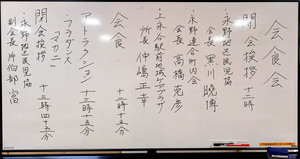 会食会
開会挨拶 十二時
・永野地区民児協
会長 黒川暁博
・永野連合町内会
会長 高橋克彦
・上永谷駅前地域ケアプラザ
所長 仲嶋正幸
会食 十二時十五分
アトラクション 十三時十五分
・フラダンス
「マカニ」
閉会挨拶 十三時四十五分
・永野地区民児協
副会長 片伯部富